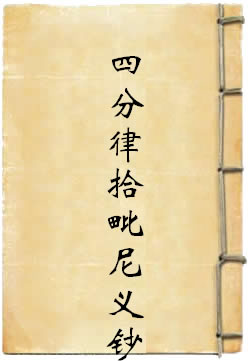 四分律拾毗尼义钞